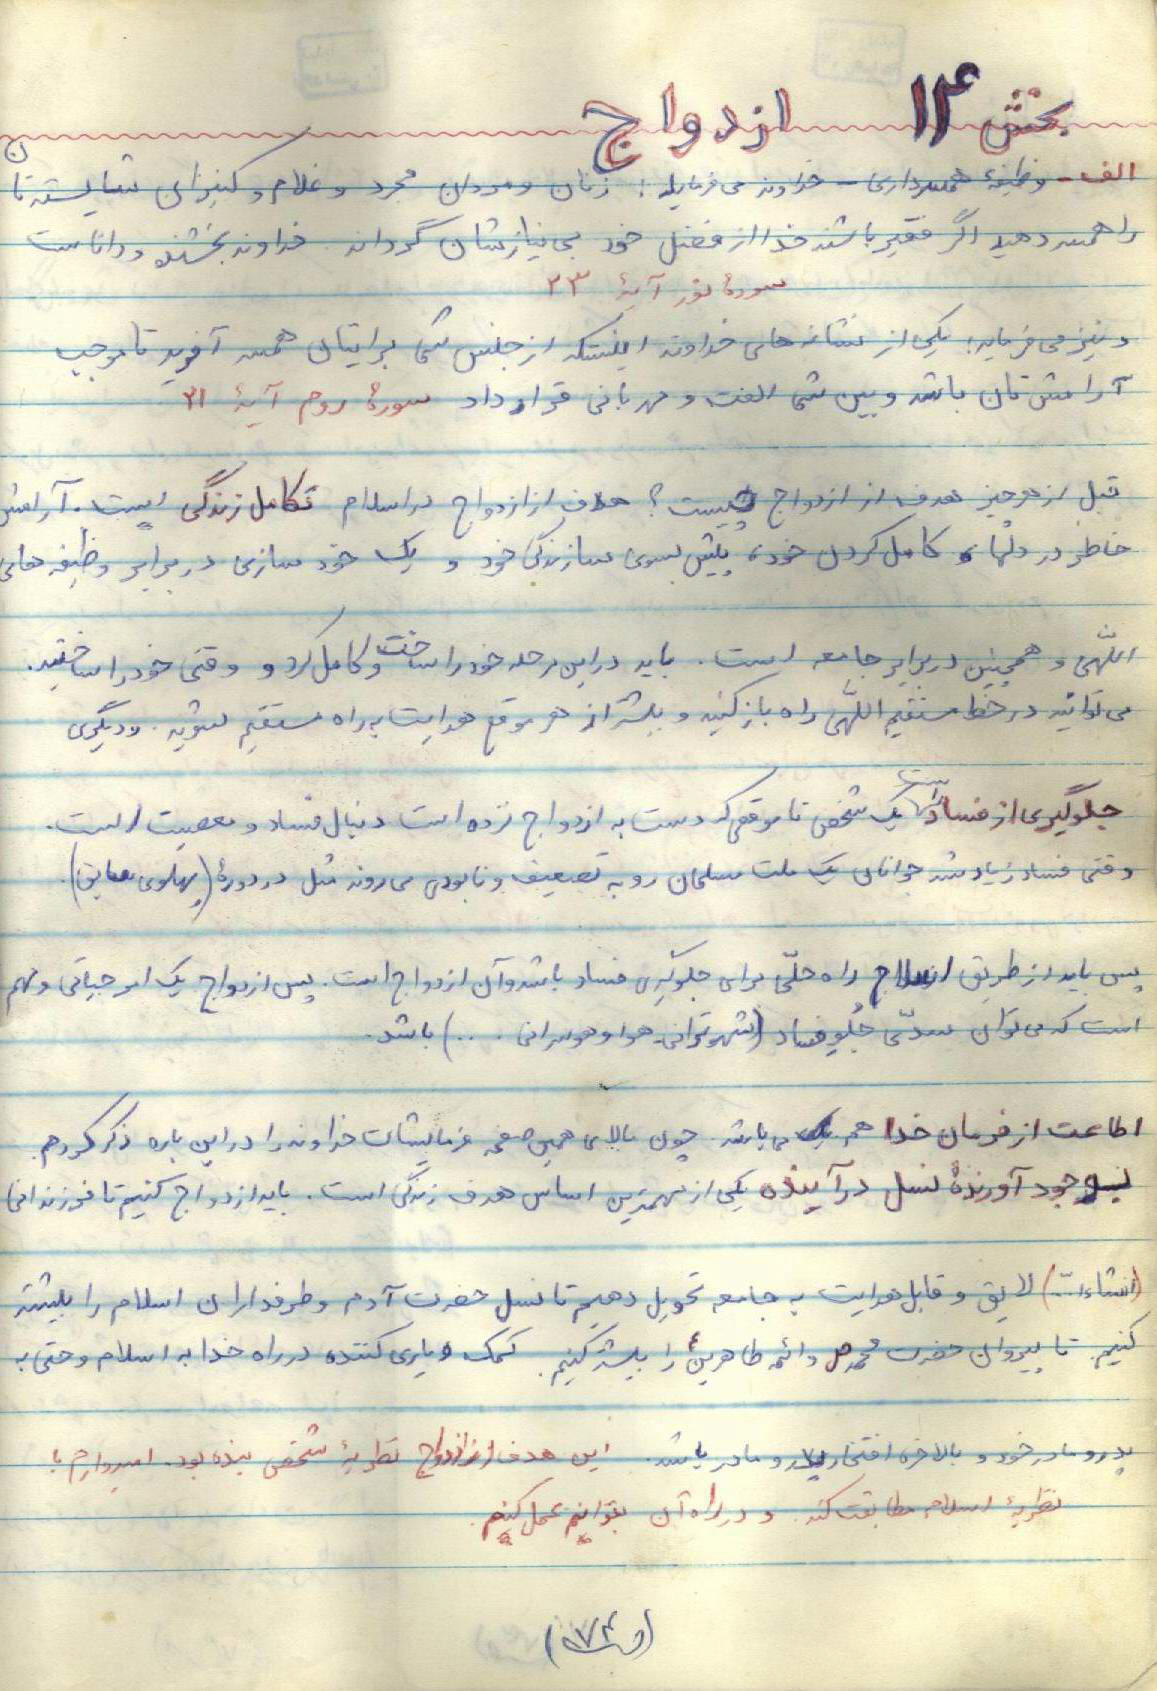 بخش ۱۴ ازدواج
الف - وظیفهٔ همسرداری - خداوند می‌فرماید: زنان و مردان مجرد و غلام و کنیزان شایسته‌تان
را همسر دهید اگر فقیر باشند خدا از فضل خود بی‌نیازشان گرداند. خداوند بخشنده و داناست
سورهٔ نور آیهٔ ۳۳
و نیز می‌فرماید: یکی از نشانه‌های خداوند اینستکه از جنس شما برایتان همسر آفرید تا موجب
آرامش‌تان باشد و بین شما الفت و مهربانی قرار داد سورهٔ روم آیهٔ ۲۱
قبل از هر چیز هدف از ازدواج چیست؟ هدف از ازدواج در اسلام تکامل زندگی است. آرامش
خاطر در دلها، کامل کردن خود، پیش بسوی ساز زندگی خود و یک خود سازی در برابر وظیفه‌های
اللهی و همچنین در برابر جامعه است. باید در این مرحله خود را ساخت و کامل کرد و وقتی خود را ساختید.
می‌توانید در خط مستقیم اللهی راه باز کنید و بیشتر از هر موقع هدایت به راه مستقیم شوید. و دیگری
جلوگیری از فساد است یک شخص تا موقعی که دست به ازدواج نزده است دنبال فساد و معصیت است.
وقتی فساد زیاد شد جوانان یک ملت مسلمان رو به تضعیف و نابودی می‌روند مثل در دورهٔ (پهلوی سابق).
پس باید از طریق اسلام راه حلّی برای جلوگیری فساد باشد و آن ازدواج است. پس ازدواج یک امر حیاتی و مهم
است که می‌توان سدّی جلو فساد (شهوترانی، هوا و هوسرانی . . .) باشد.
اطاعت از فرمان خدا هم می‌باشد. چون بالای همین صفحه فرمایشات خداوند را در این باره ذکر کردم.
بوجود آورندهٔ نسل در آینده یکی از مهمترین اساس هدف زندگی است. باید ازدواج کنیم تا فرزندانی
(انشاءا...) لایق و قابل هدایت به جامعه تحویل دهیم تا نسل حضرت آدم و طرفداران اسلام را بیشتر
کنیم. تا پیروان حضرت محمد ص و ائمه طاهرین ع را بیشتر کنیم. کمک و یاری کننده در راه خدا به اسلام و حتی به
پدر و مادر خود و بالاخره افتخار پدر و مادر باشد. این هدف از ازدواج نظریهٔ شخص بنده بود. امیدوارم با
نظریهٔ اسلام مطابقت کند. و در راه آن بتوانیم عمل کنیم.
(۱۷۴)